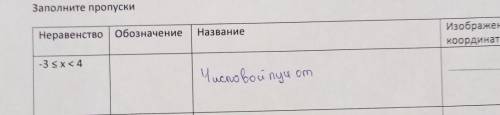 Заполните пропуски
Неравенство Обозначение Название Изображен
координат
-3 ≤ x < 4
Числовой от